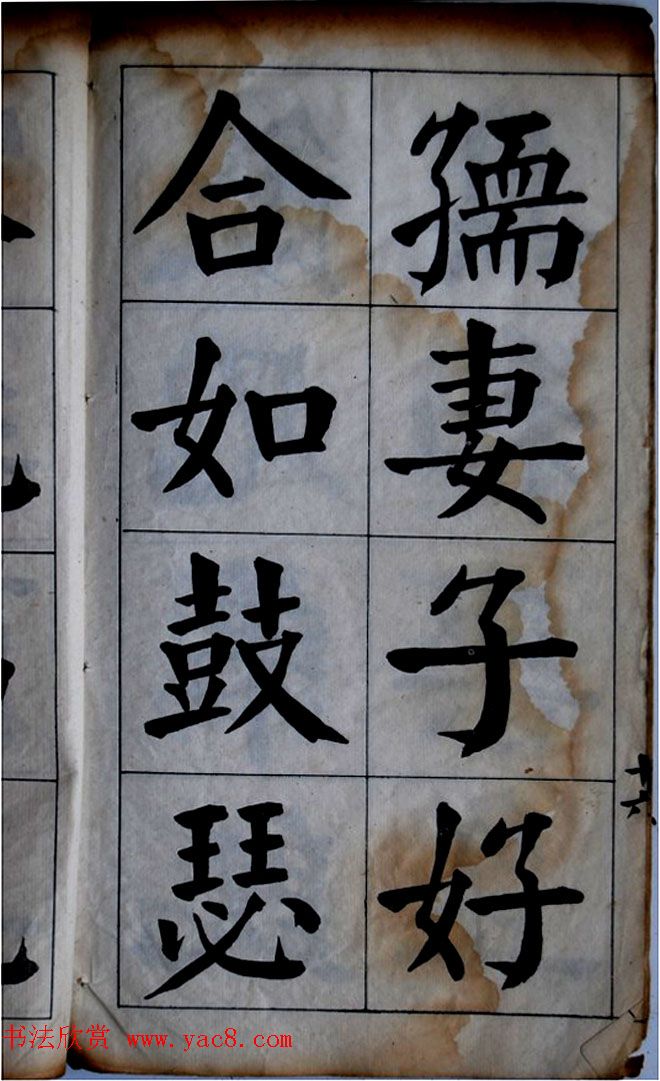 孺妻子好
合如鼓瑟
十六
书法欣赏 www.yac8.com